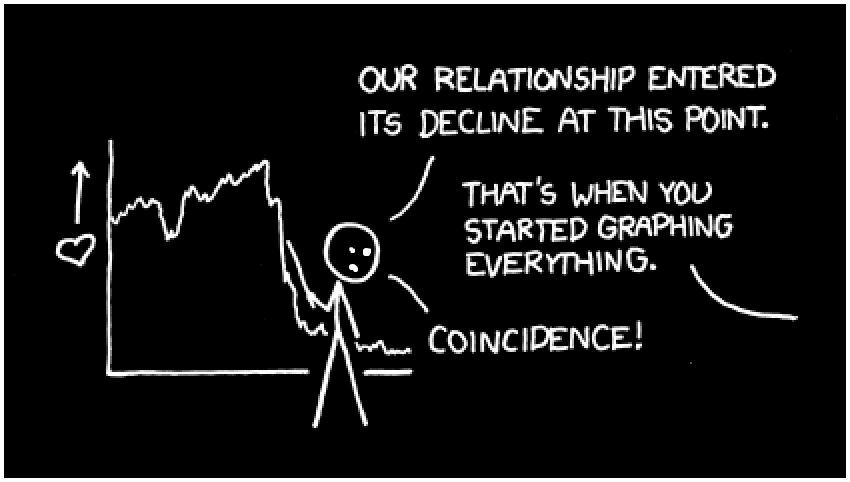 OUR RELATIONSHIP ENTERED
ITS DECLINE AT THIS POINT.
THAT'S WHEN YOU
STARTED GRAPHING
EVERYTHING.
COINCIDENCE!